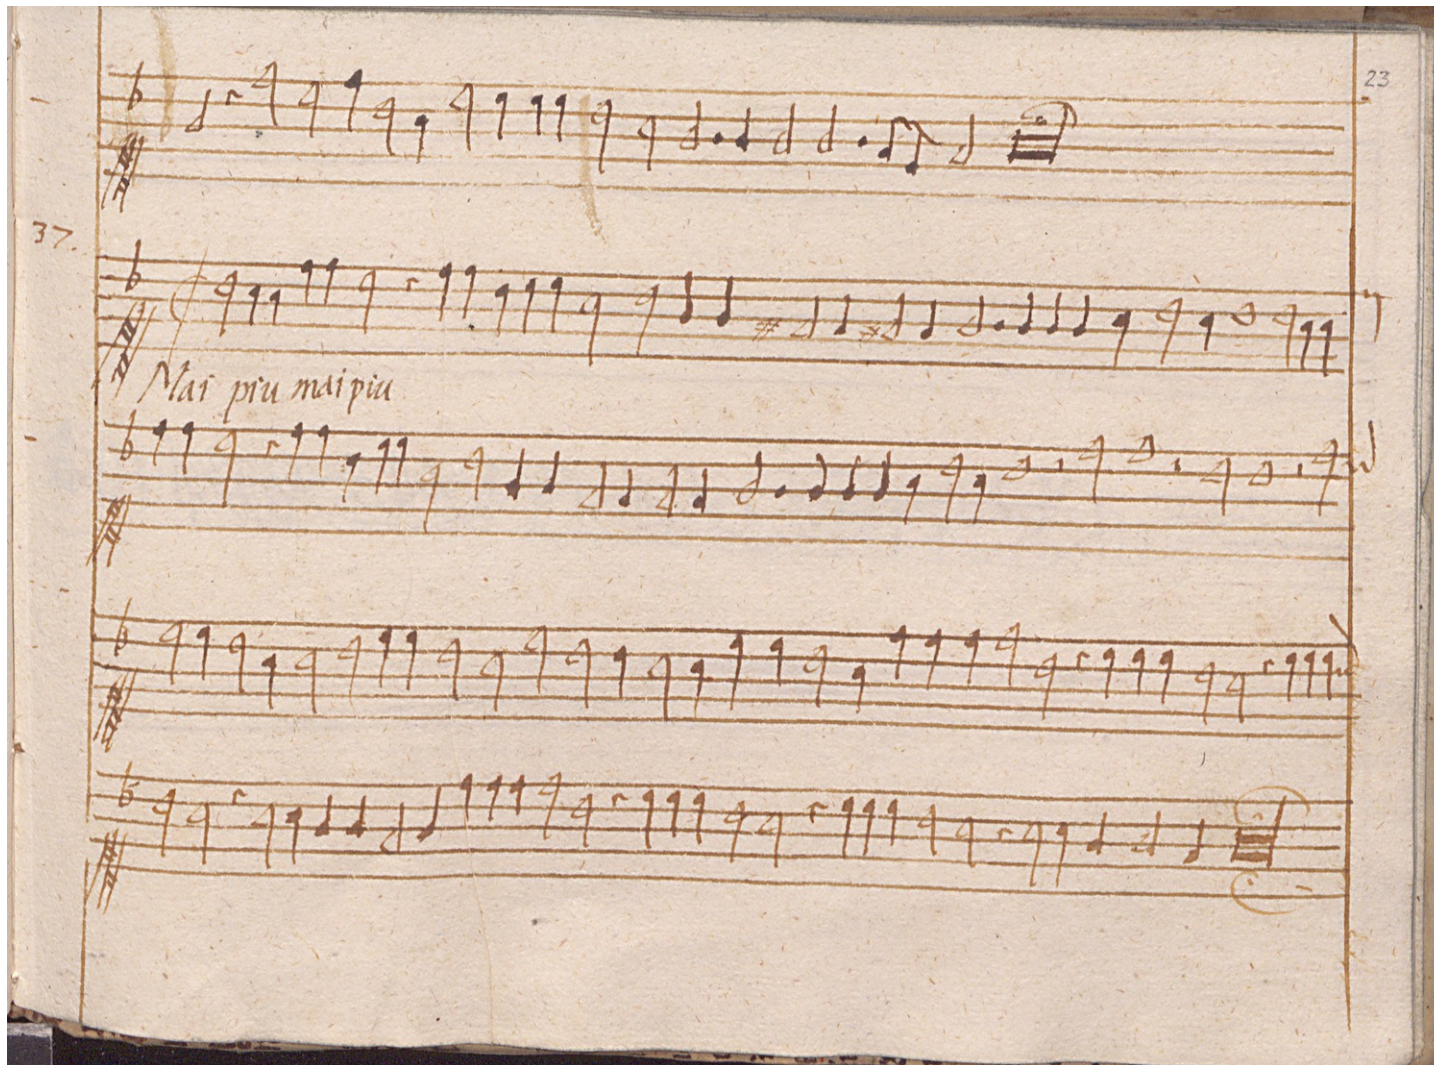 23
37.
Mai piu mai piu